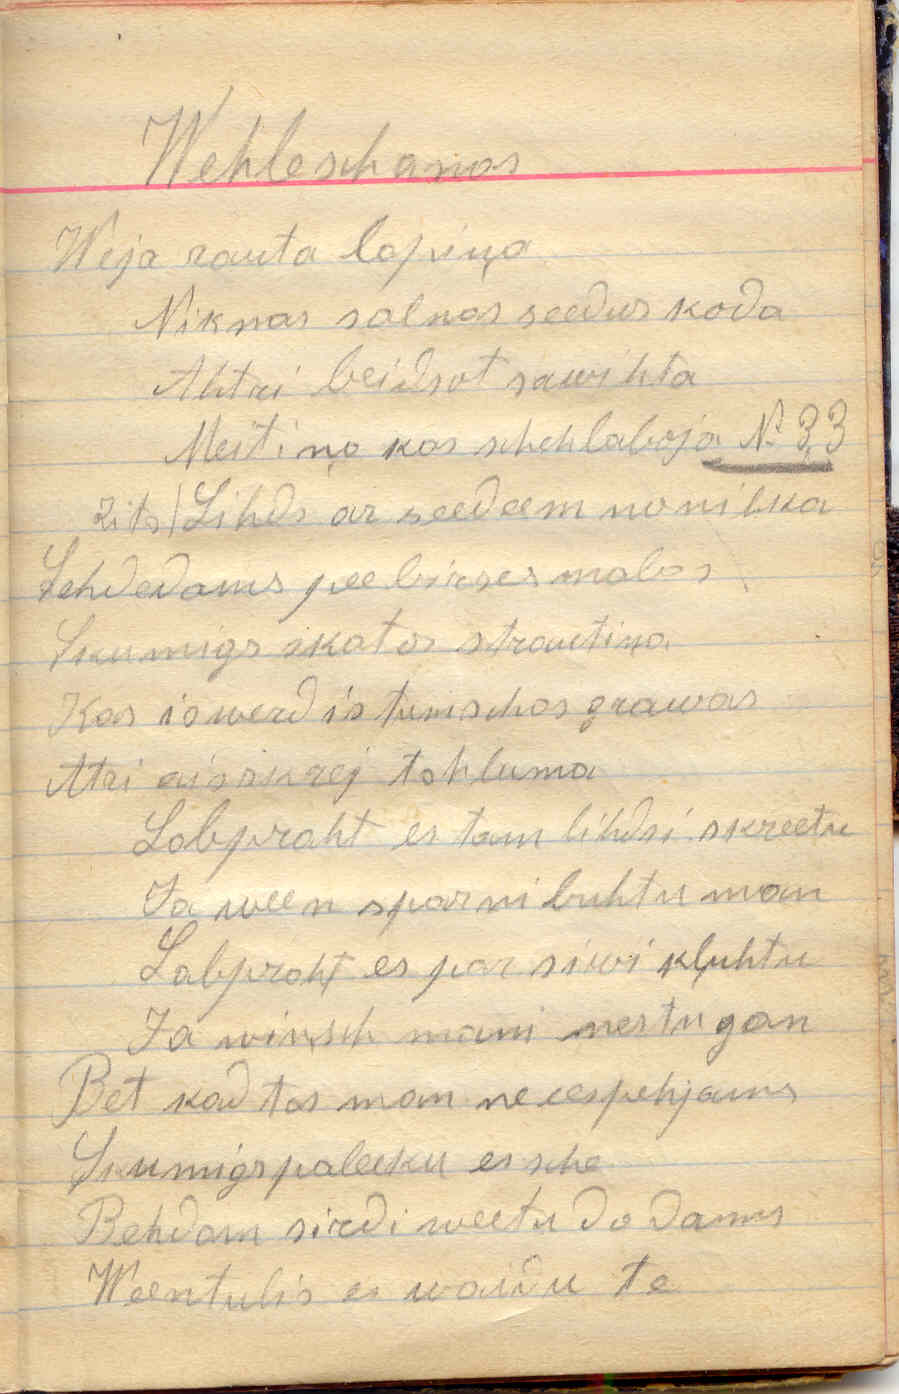 Wehleschanas
Weja rauta lapiņa
Niknas salnas seedus koda
Ahtri beidsot sawihta
Meitiņa kas schehlaboja № 33
zits / Lihds ar seedeem nonihka
Sehdedams pee birses malas
Skumigs skatos strautiņa
Kas iswerd is tumschas grawas
Atri aisskrej tahluma
Labpraht es tam lihdsi skreetu
Ja ween sparni buhtu man
Labpraht es par siwi kļuhtu
Ja wiņsch mani nestu gan
Bet kad tas man neeespehjams
Skumigs paleeku es sche
Behdam sirdi weetu dodams
Weentulis es waidu te